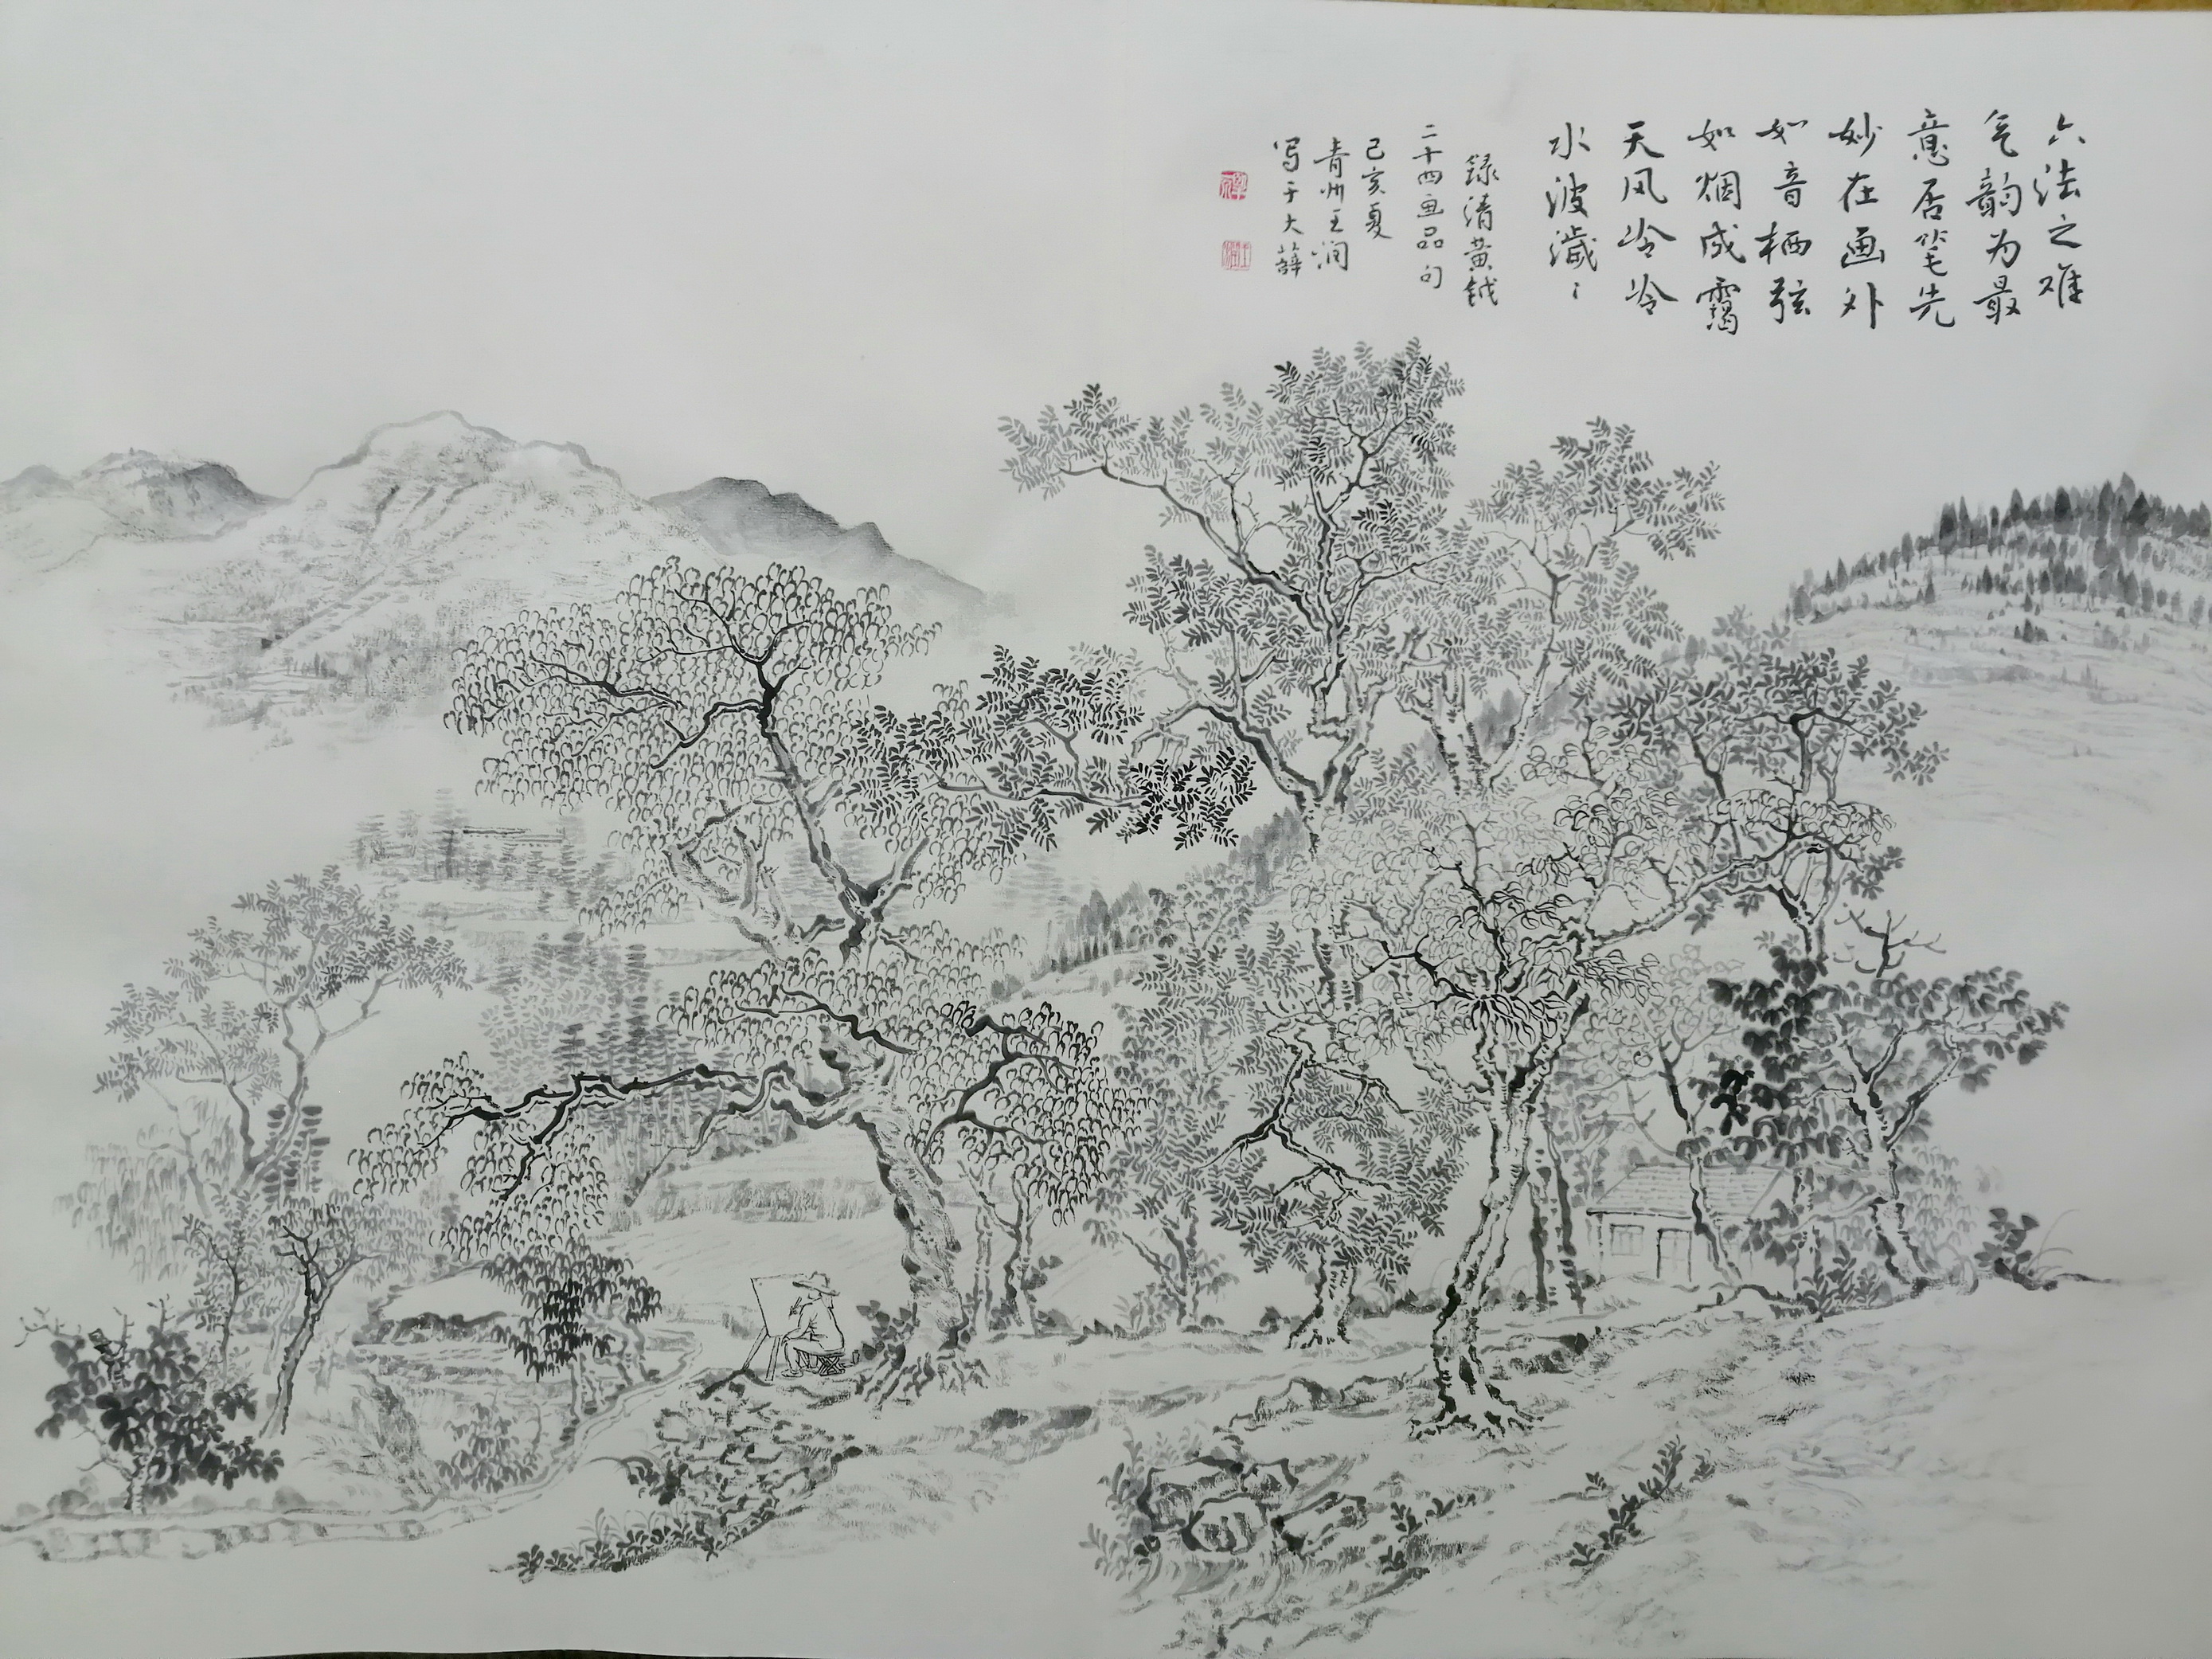 六法之难
气韵为最
意居笔先
妙在画外
如音栖弦
如烟成霭
天风冷冷
水波濊〻
録清黄钺
二十四画品句
己亥夏
青州王润
写于大薛